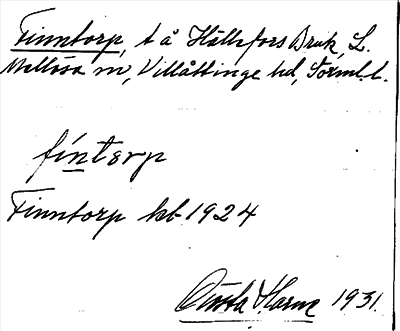 Finntorp, t å Hällefors Bruk, L.
Mellösa sn, Villåttinge hd, Sörml. l.
fíntərp
Finntorp kb 1924
Gösta 1931.